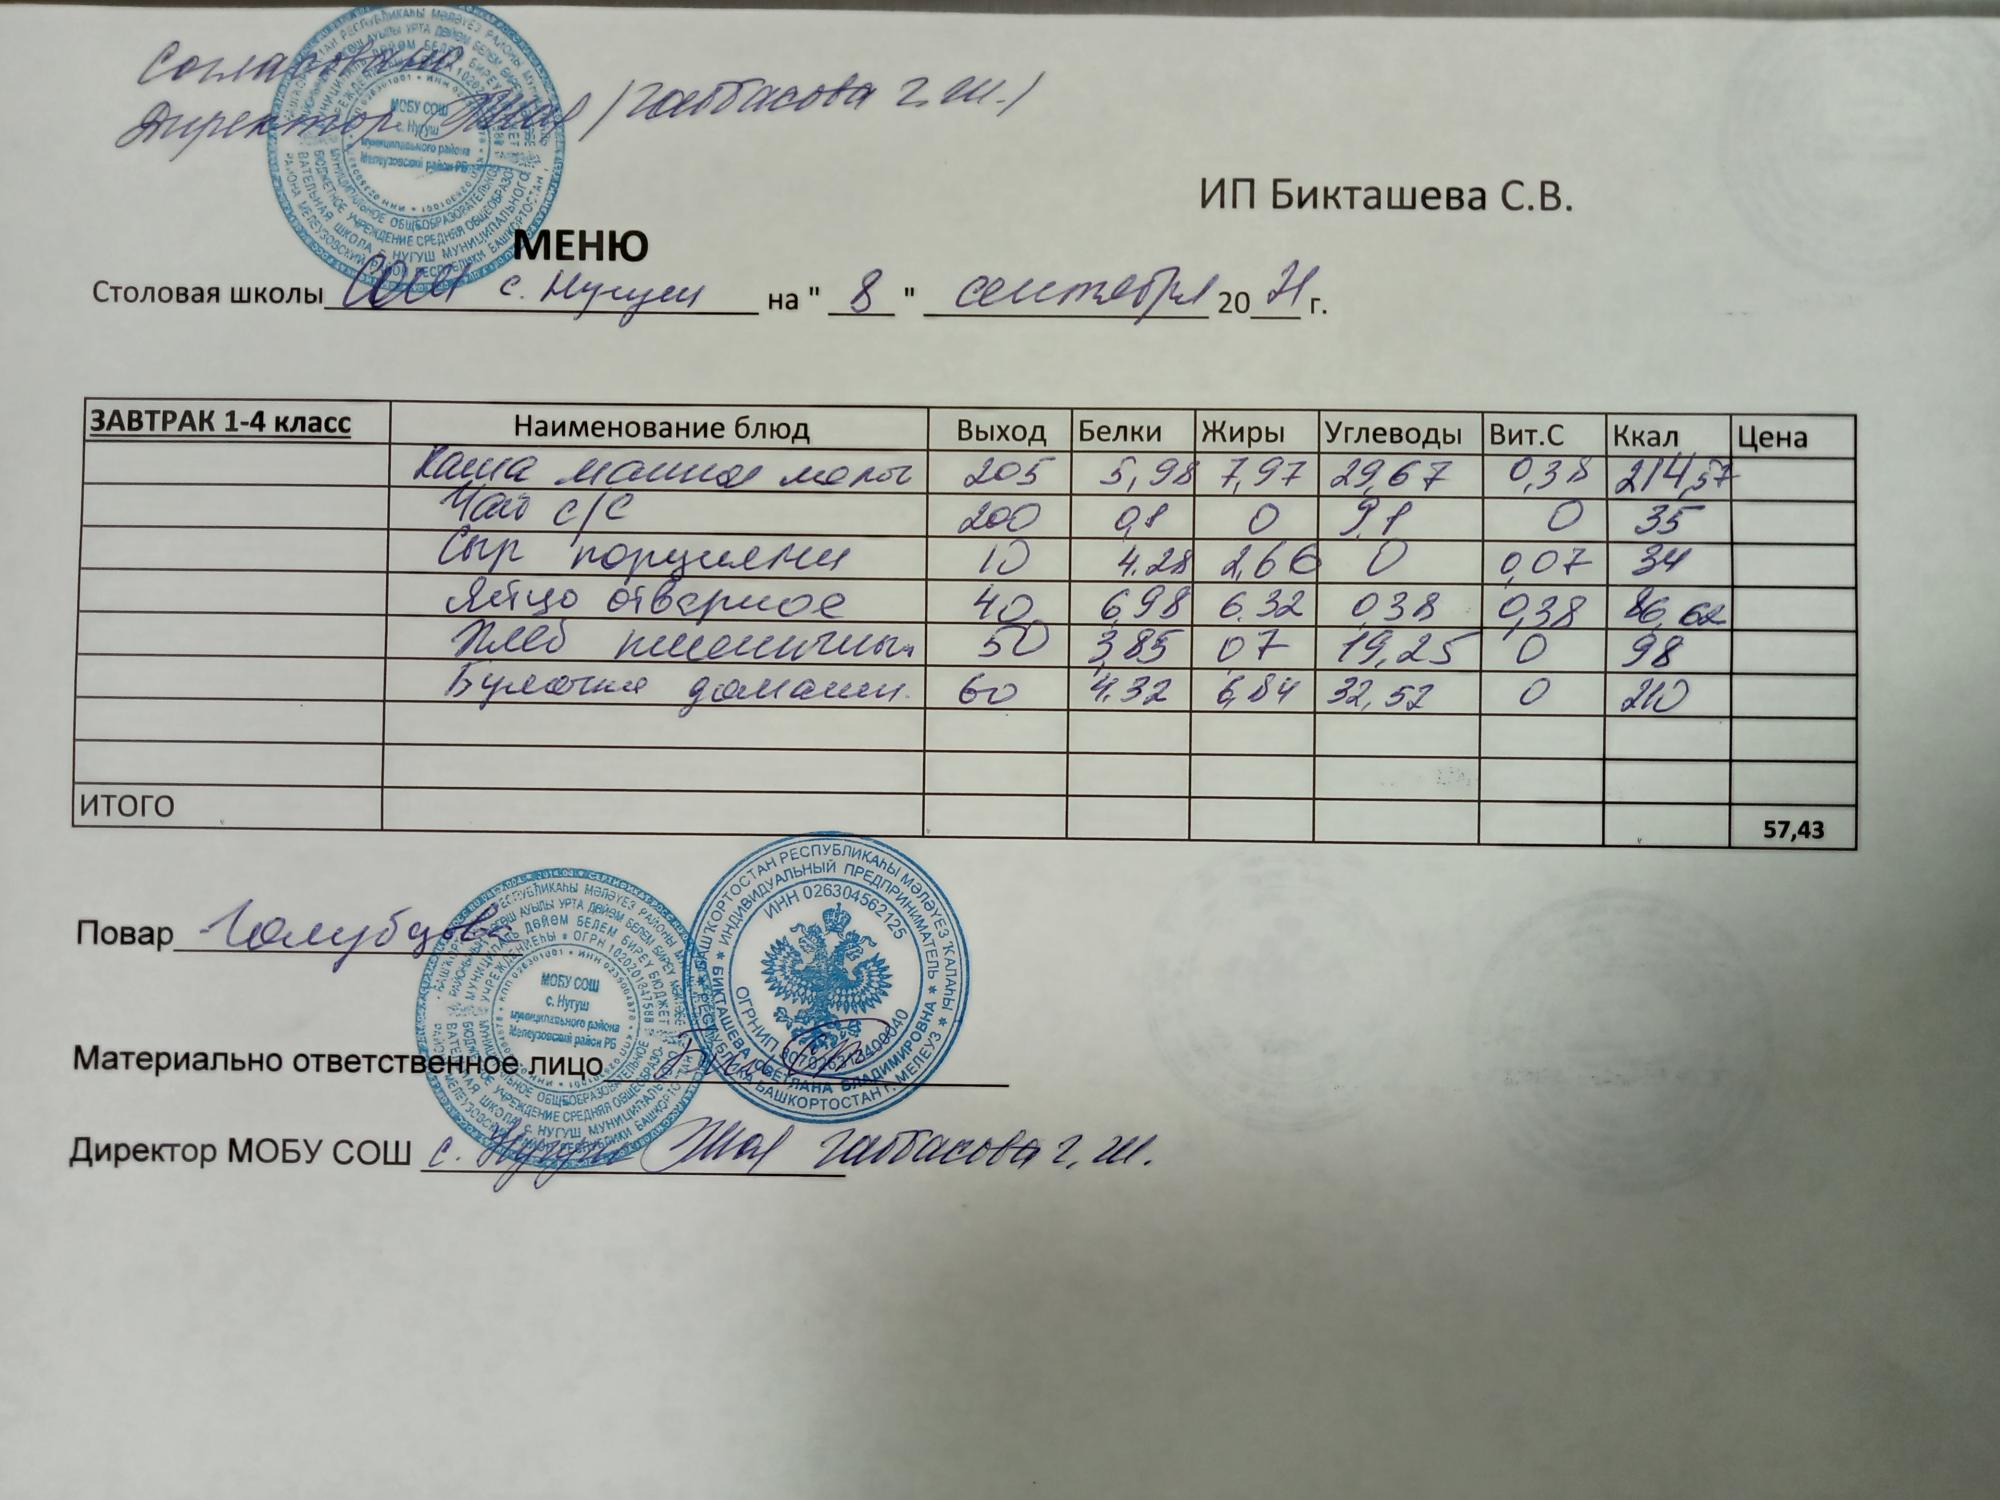 Согласовано
Директор /Габбасова Г.Ж./
МОБУ СОШ
с. Нугуш
муниципального района
Мелеузовский район РБ
ИП Бикташева С.В.
МЕНЮ
Столовая школы СОШ с. Нугуш на " 8 " сентября 20 21 г.
ЗАВТРАК 1-4 класс Наименование блюд Выход Белки Жиры Углеводы Вит.С Ккал Цена
Каша манная молоч 205 5,98 7,97 29,67 0,38 214,57
Чай с/с 200 0,1 0 9,1 0 35
Сыр порциями 10 4.28 2,66 0 0,07 34
Яйцо отверное 40 6,98 6.32 0,38 0,38 86,62
Хлеб пшеничный 50 3,85 0,7 19,25 0 98
Булочка домашн. 60 4.32 6,84 32,52 0 210
ИТОГО 57,43
Повар Голубцова
БАШҠОРТОСТАН РЕСПУБЛИКАҺЫ МӘЛӘҮЕЗ ҠАЛАҺЫ
ИНДИВИДУАЛЬНЫЙ ПРЕДПРИНИМАТЕЛЬ
ИНН 026304562125
БИКТАШЕВА СВЕТЛАНА ВЛАДИМИРОВНА
РЕСПУБЛИКА БАШКОРТОСТАН Г. МЕЛЕУЗ
МОБУ СОШ
с. Нугуш
муниципального района
Мелеузовский район РБ
Материально ответственное лицо
Директор МОБУ СОШ с. Нугуш Габбасова Г.Ж.